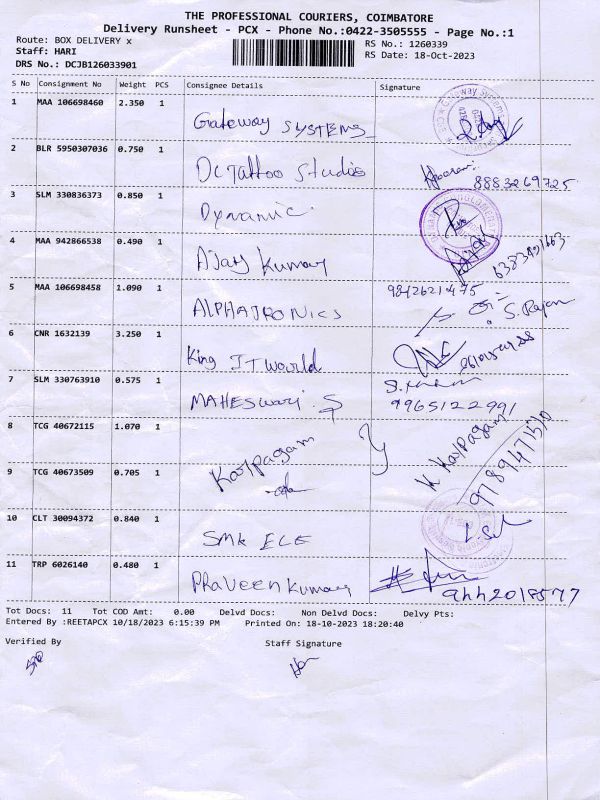 THE PROFESSIONAL COURIERS, COIMBATORE
Delivery Runsheet - PCX - Phone No.:0422-3505555 - Page No.:1
Route: BOX DELIVERY x
RS No.: 1260339
Staff: HARI
RS Date: 18-Oct-2023
DRS No.: DCJB126033901
S No Consignment No Weight PCS Consignee Details Signature
1 MAA 106698460 2.350 1 Gateway SYSTEMS
2 BLR 5950307036 0.750 1 DC Tattoo Studio 8883269725
3 SLM 330836373 0.850 1 Dynamic
4 MAA 942866538 0.490 1 Ajay Kumar
5 MAA 106698458 1.090 1 ALPHATRONICS 9842621475 S. Rajan
6 CNR 1632139 3.250 1 King IT World
7 SLM 330763910 0.575 1 MAHESwari. S 9965122991
8 TCG 40672115 1.070 1 Karpagam K Karpagam
9 TCG 40673509 0.705 1
10 CLT 30094372 0.840 1 SMK ELE
11 TRP 6026140 0.480 1 Praveen Kumar
Tot Docs: 11 Tot COD Amt: 0.00 Delvd Docs: Non Delvd Docs: Delvy Pts:
Entered By :REETAPCX 10/18/2023 6:15:39 PM Printed On: 18-10-2023 18:20:40
Verified By Staff Signature